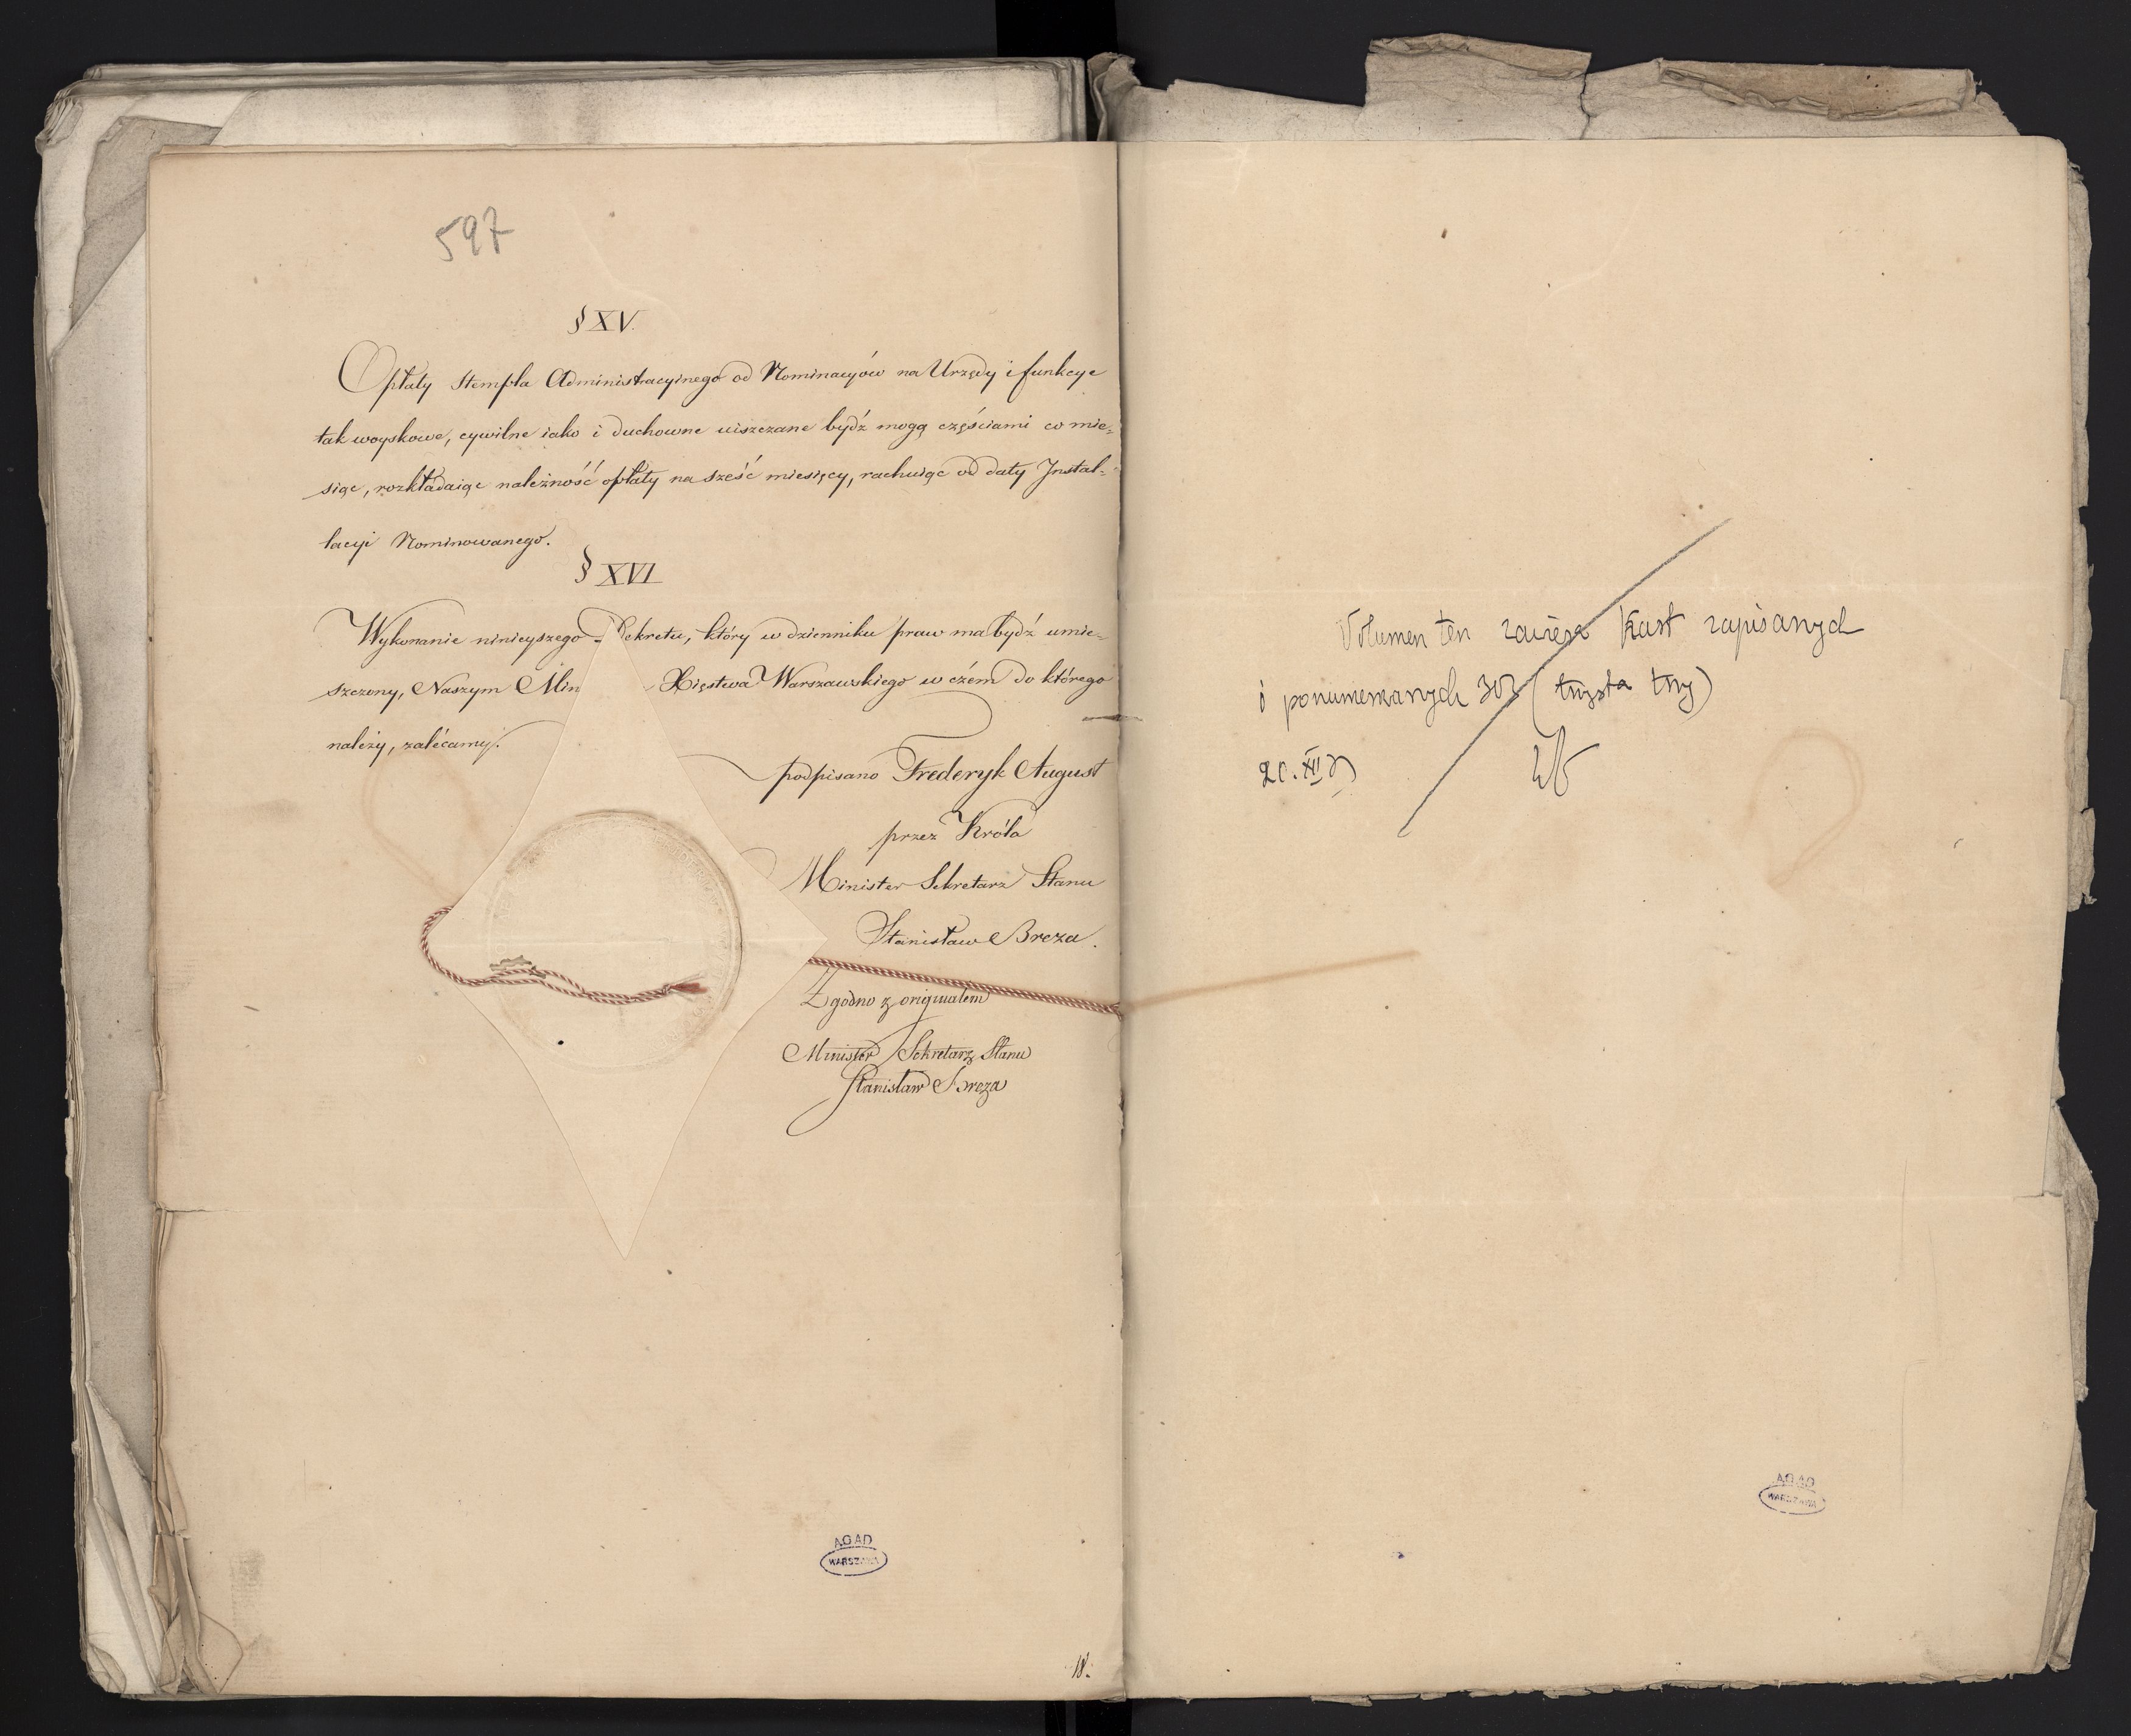 597
§ XV.
Opłaty Stempla Administracyinego od Nominacyów na Urzędy i funkcye
tak woyskowe, cywilne iako i duchowne uiszczane bydź mogą częściami co mie-
siąc, rozkładaiąc należność opłaty na sześć miesięcy, rachuiąc od daty Instal-
lacyi Nominowanego.
§ XVI
Wykonanie ninieyszego Dekretu, który w dzienniku praw ma bydź umie-
szczony, Naszym Min Xięstwa Warszawskiego w czém do którego
należy, zalécamy.
podpisano Frederyk August
przez Króla
Minister Sekretarz Stanu
Stanisław Breza.
Zgodno z originałem
Minister Sekretarz Stanu
Stanisław Breza
AGAD
WARSZAWA
18.
Volumen ten zawiera kart zapisanych
i ponumerowanych 303 (trzysta trzy)
20. XII
AGAD
WARSZAWA